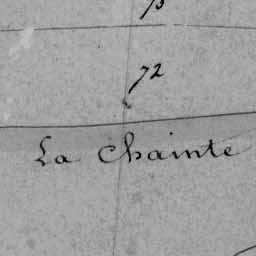 72
La Chainte